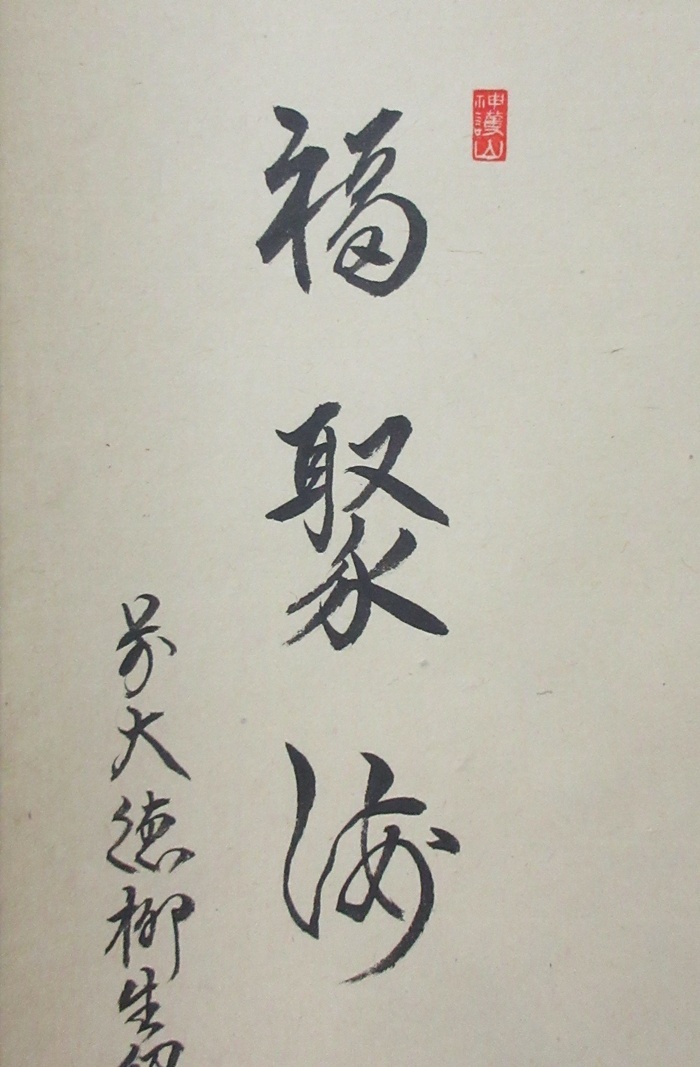 神護山
福聚海
前大徳柳生